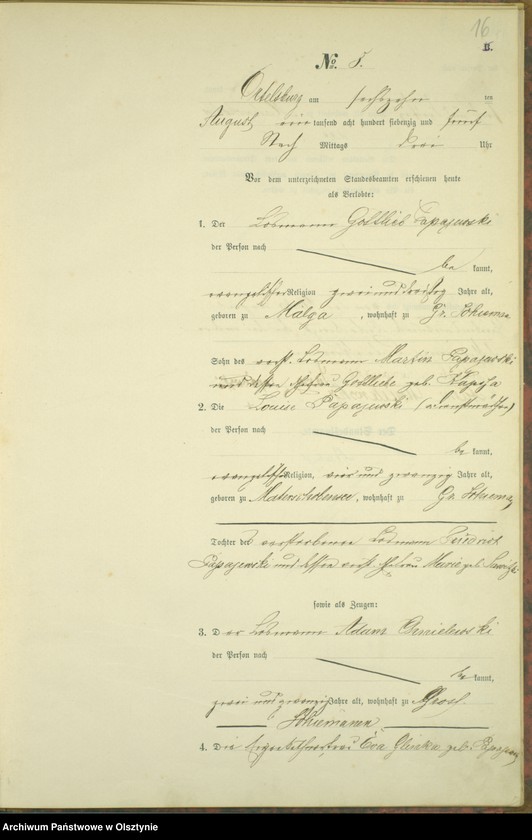 16
B.
No. 8.
Ortelsburg am sechszehn ten
August ein tausend acht hundert siebenzig und fünf
Nach Mittags drei Uhr
Vor dem unterzeichneten Standesbeamten erschienen heute
als Verlobte:
1. Der Losmann Gottlieb Papajewski
der Person nach
be kannt,
evangelischer Religion zwei und dreißig Jahre alt,
geboren zu Malga, wohnhaft zu Gr. Schiemanen
Sohn des verst. Losmann Martin Papajewski
und dessen Ehefrau Gottliebe geb.
2. Die Louise Papajewski
der Person nach
be kannt,
evangelischer Religion, vier und zwanzig Jahre alt,
geboren zu , wohnhaft zu Gr.
Tochter des verstorbenen Losmann Friedrich
Papajewski und dessen verst. Ehefrau Marie geb.
sowie als Zeugen:
3. Der Losmann Adam
der Person nach
be kannt,
zwei und zwanzig Jahre alt, wohnhaft zu Gross
4. Die Eva geb.
Archiwum Państwowe w Olsztynie